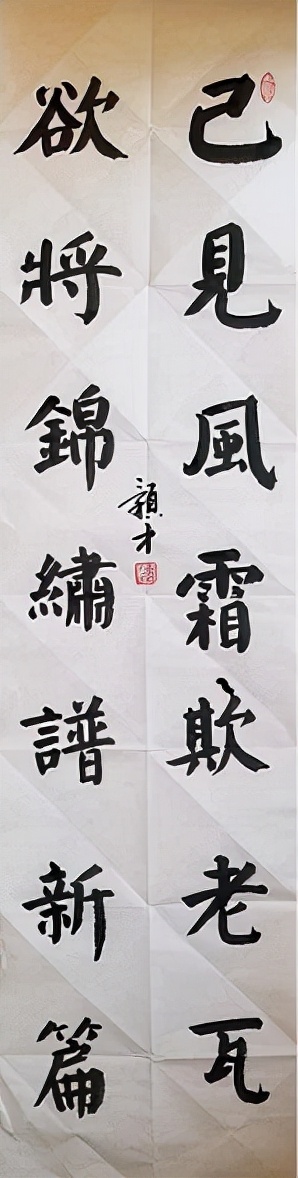 己見風霜欺老瓦
欲將錦繡譜新篇
穎才